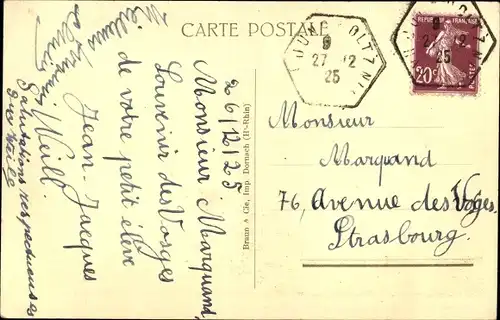 CARTE POSTALE
26/12/25
Monsieur Marquand,
Souvenir des Vosges
de votre petit élève
Jean-Jacques
Weill.
Salutations respectueuses
des Weill
Braun & Cie, Imp. Dornach (Ht-Rhin)
9
27 12
25
REPUBLIQUE FRANÇAISE
20c
POSTES
9
27 12
25
Monsieur
Marquand
76, Avenue des Vosges
Strasbourg.